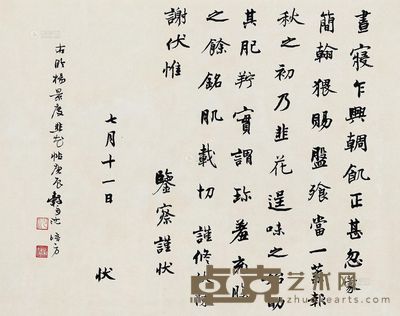 晝寢乍興輖飢正甚忽蒙
簡翰猥賜盤飧當一葉報
秋之初乃韭花逞味之始助
其肥羜實謂珍羞充腹
之餘銘肌載切謹修狀陳
謝伏惟
鑒察謹狀
七月十一日
狀
楊景度韭花帖庚辰沈培方
卓克艺术网
zhuokearts.com